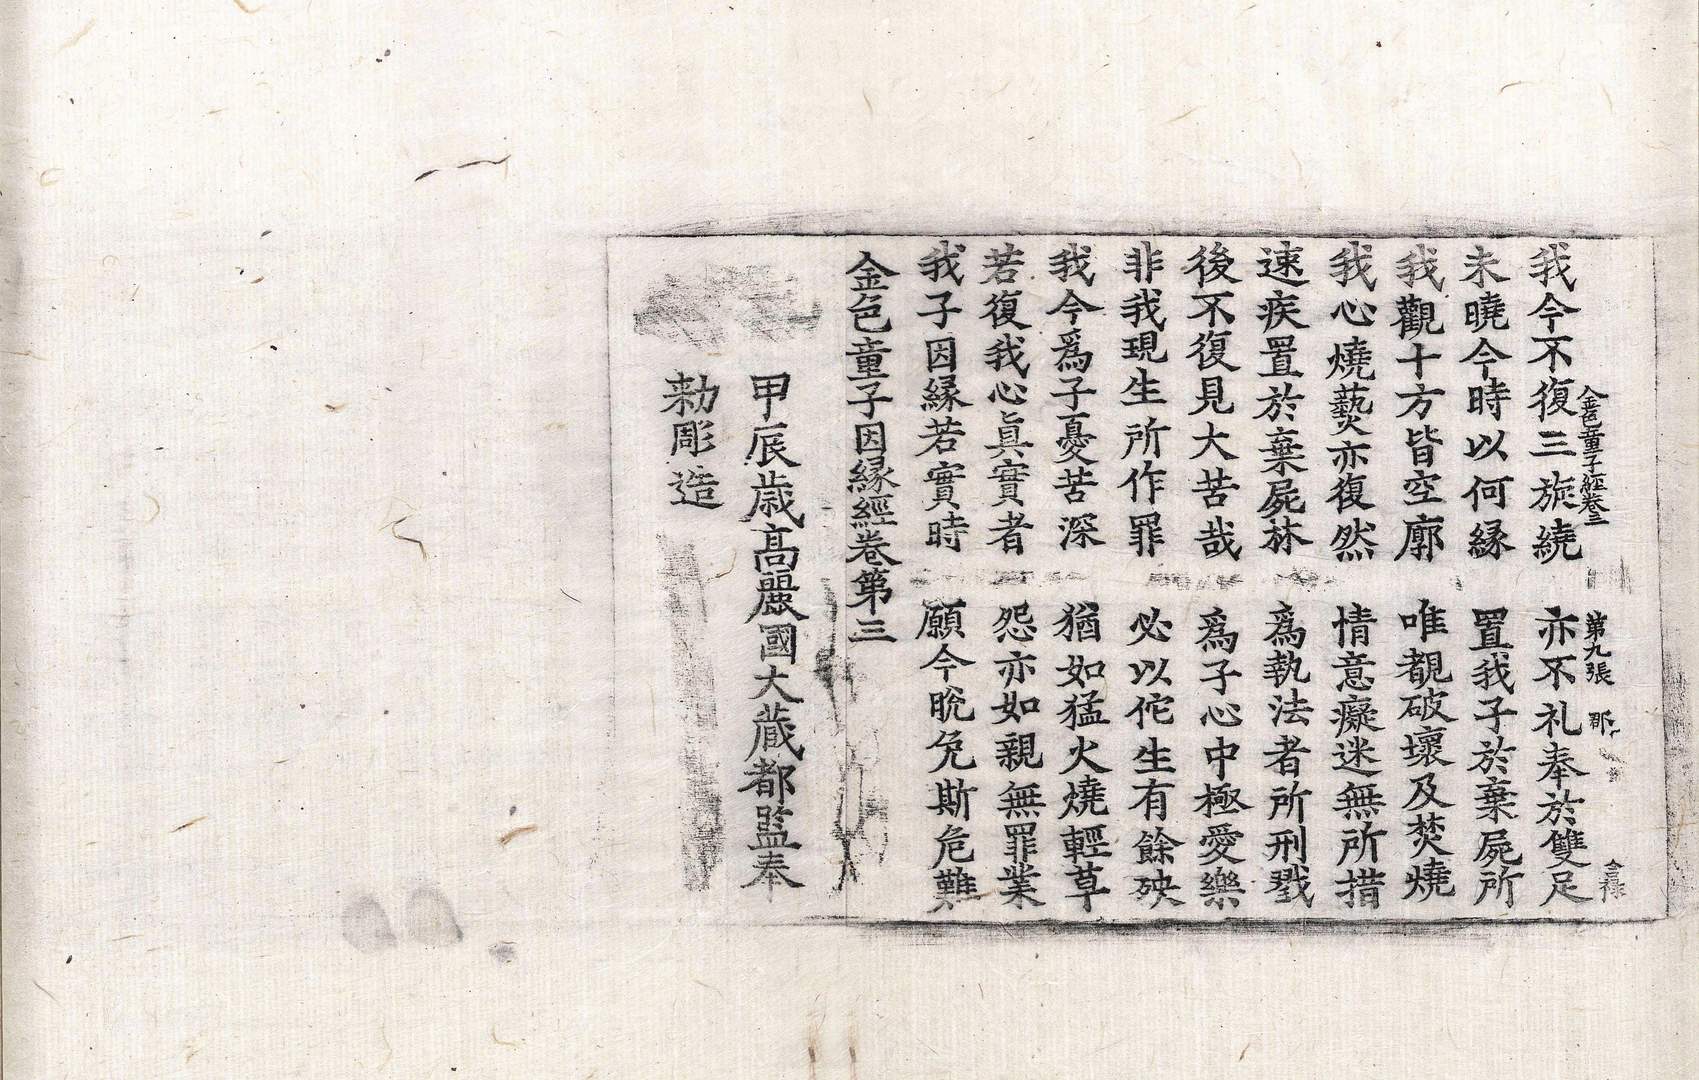 金色童子經卷三　第九張　郡　合禄
我今不復三旋繞　亦不礼奉於雙足
未曉今時以何緣　置我子於棄屍所
我觀十方皆空廓　唯覩破壞及焚燒
我心燒爇亦復然　情意癡迷無所措
速疾置於棄屍林　爲執法者所刑戮
後不復見大苦哉　爲子心中極愛樂
非我現生所作罪　必以佗生有餘殃
我今爲子憂苦深　猶如猛火燒輕草
若復我心眞實者　怨亦如親無罪業
我子因緣若實時　願今脫免斯危難
金色童子因緣經卷第三
甲辰歲高麗國大藏都監奉
勅彫造